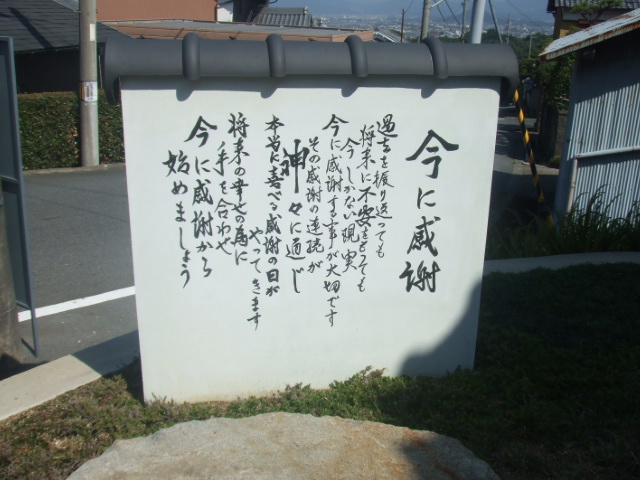 今に感謝
過去を振り返っても
将来に不安をもっても
今しかない現実
今に感謝する事が大切です
その感謝の連続が
神々に通じ
本当に喜べる感謝の日が
やってきます
将来の幸せの為に
手を合わせ
今に感謝から
始めましょう